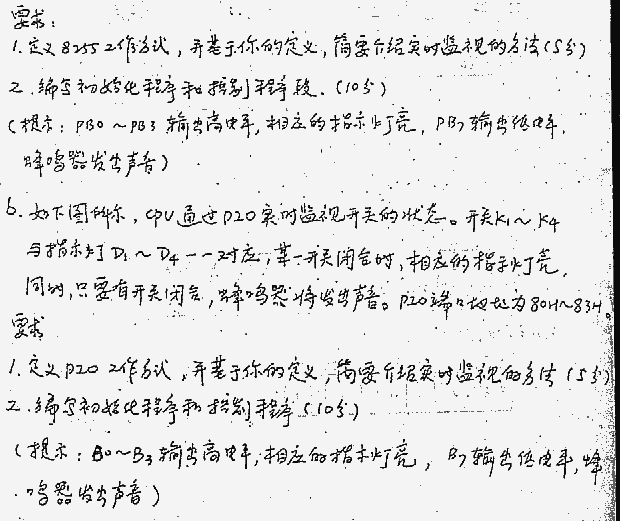 要求:
1. 定义8255工作方式，并基于你的定义，简要介绍实时监视的方法(5分)
2. 编写初始化程序和控制程序段.(10分)
(提示：PB0～PB3输出高电平,相应的指示灯亮，PB7输出低电平,
蜂鸣器发出声音)
6. 如下图所示，CPU通过PIO实时监视开关的状态。开关K1～K4
与指示灯D1～D4一一对应,某一开关闭合时,相应的指示灯亮,
同时,只要有开关闭合,蜂鸣器将发出声音。PIO端口地址为80H～83H。
要求
1. 定义PIO工作方式,并基于你的定义,简要介绍实时监视的方法(5分)
2. 编写初始化程序和控制程序(10分)
(提示：B0～B3输出高电平,相应的指示灯亮，B7输出低电平,蜂
鸣器发出声音)